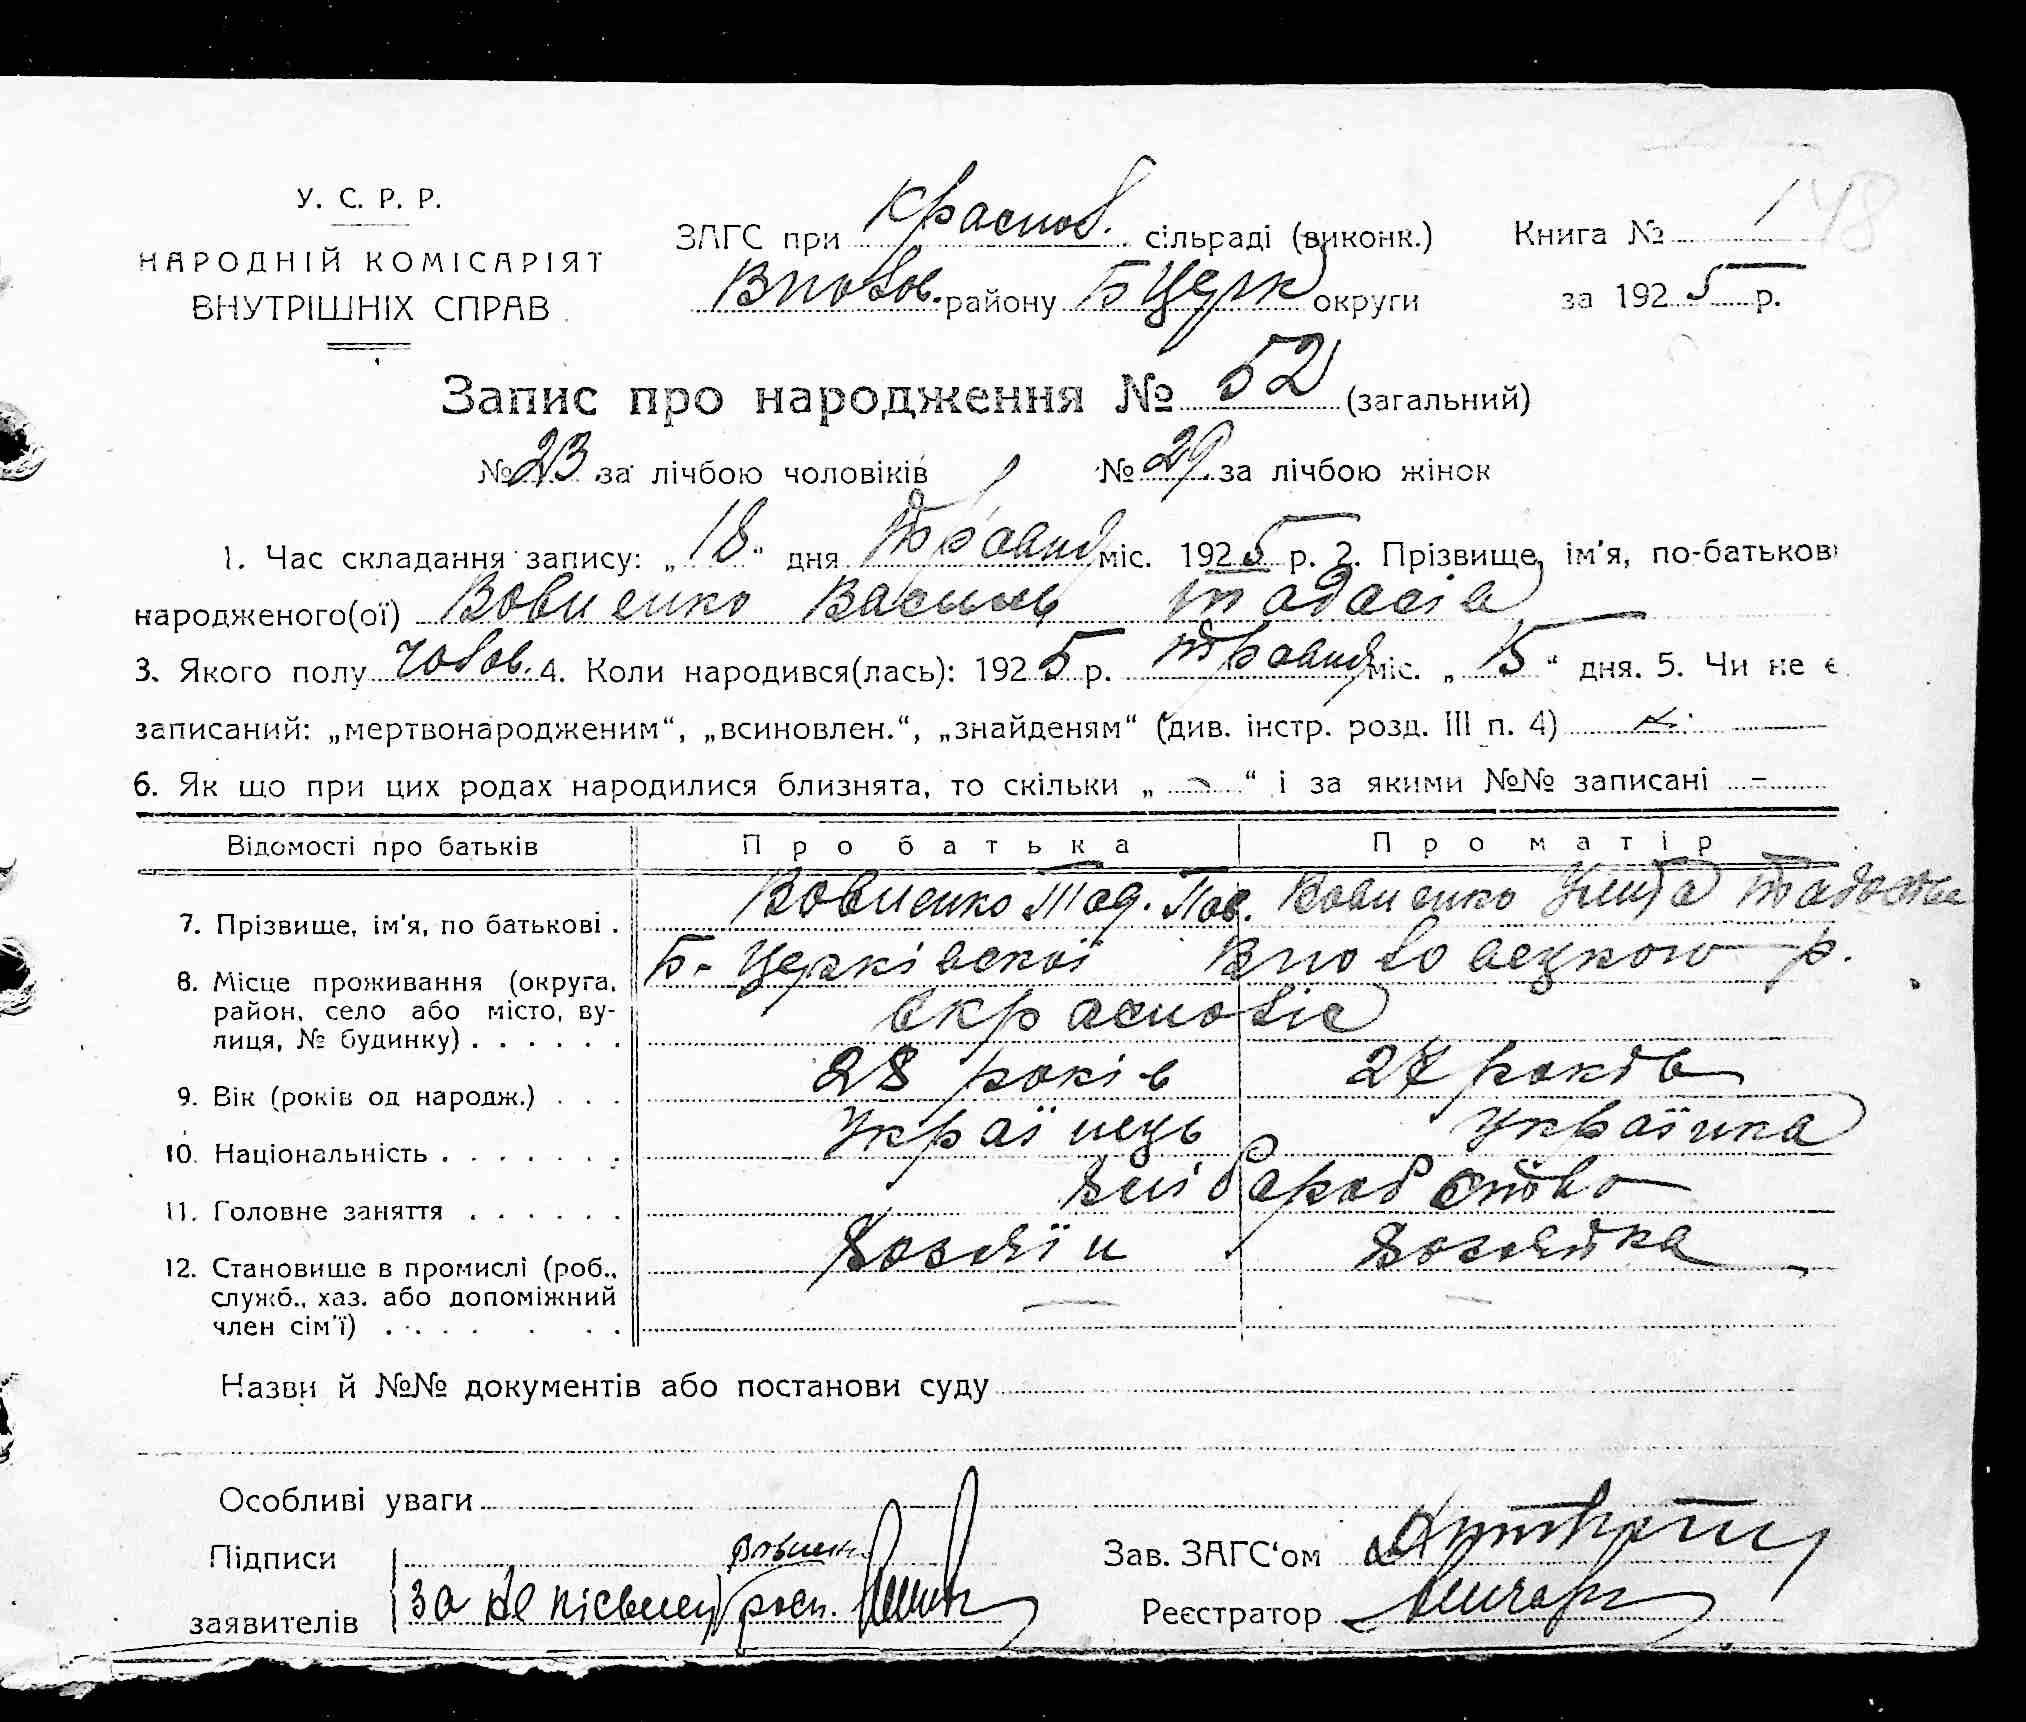 148
У. С. Р. Р.
НАРОДНІЙ КОМІСАРІЯТ
ВНУТРІШНІХ СПРАВ
ЗАГС при Краснов. сільраді (виконк.) Книга № 1
району Б Церк округи за 1925 р.
Запис про народження № 52 (загальний)
№ 23 за лічбою чоловіків № 29 за лічбою жінок
1. Час складання запису: „18“ дня Травня міс. 1925 р. 2. Прізвище, ім'я, по-батькові
народженого(ої) Вовченко Василь Тадасів
3. Якого полу чолов. 4. Коли народився(лась): 1925 р. травня міс. „15“ дня. 5. Чи не є
записаний: „мертвонародженим“, „всиновлен.“, „знайденям“ (див. інстр. розд. III п. 4)
6. Як що при цих родах народилися близнята, то скільки „ - “ і за якими №№ записані -
Відомості про батьків Про батька Про матір
7. Прізвище, ім'я, по батькові . Вовченко Тад. Пав. Вовченко
8. Місце проживання (округа, район, село або місто, вулиця, № будинку) . . . . . . Б-Церківскої р.
9. Вік (років од народж.) . . . 28 років 27 років
10. Національність . . . . . . . Українець Українка
11. Головне заняття . . . . . . Хліборобство
12. Становище в промислі (роб., служб., хаз. або допоміжний член сім'ї) Хозяїн Хозяйка
Назви й №№ документів або постанови суду
Особливі уваги
Підписи Зав. ЗАГС'ом
заявителів За не писмен росп. Реєстратор